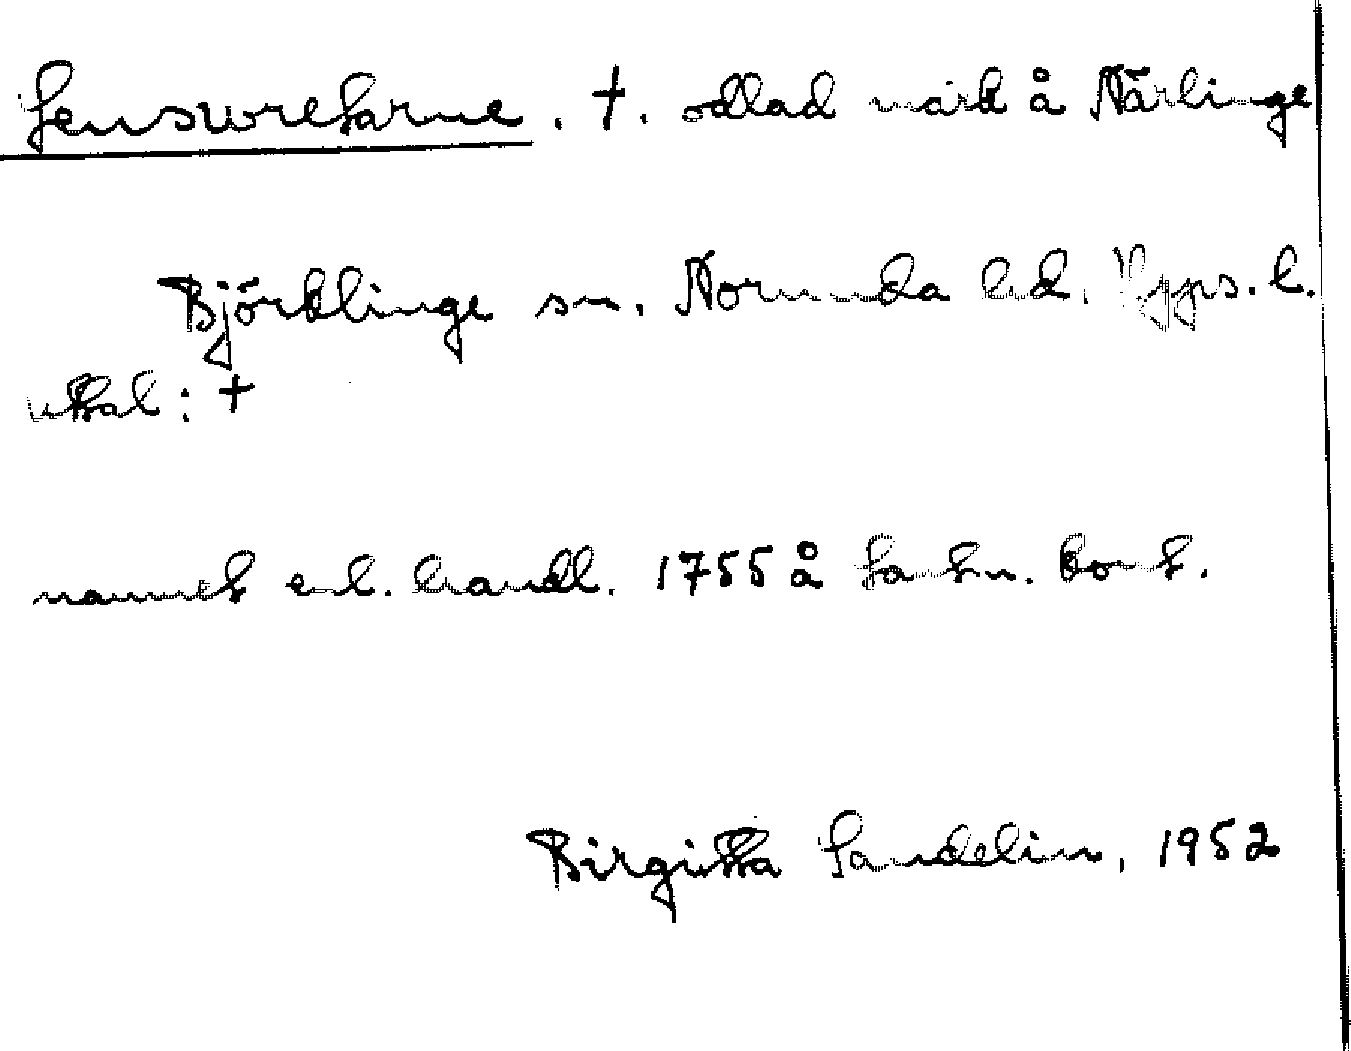 Jenswretarne. †. odlad mark å Närlinge
Björklinge sn. Norunda hd. Upps. l.
uttal: †
namnet enl. handl. 1755 å lantm. kont.
Birgitta Sandelin, 1952